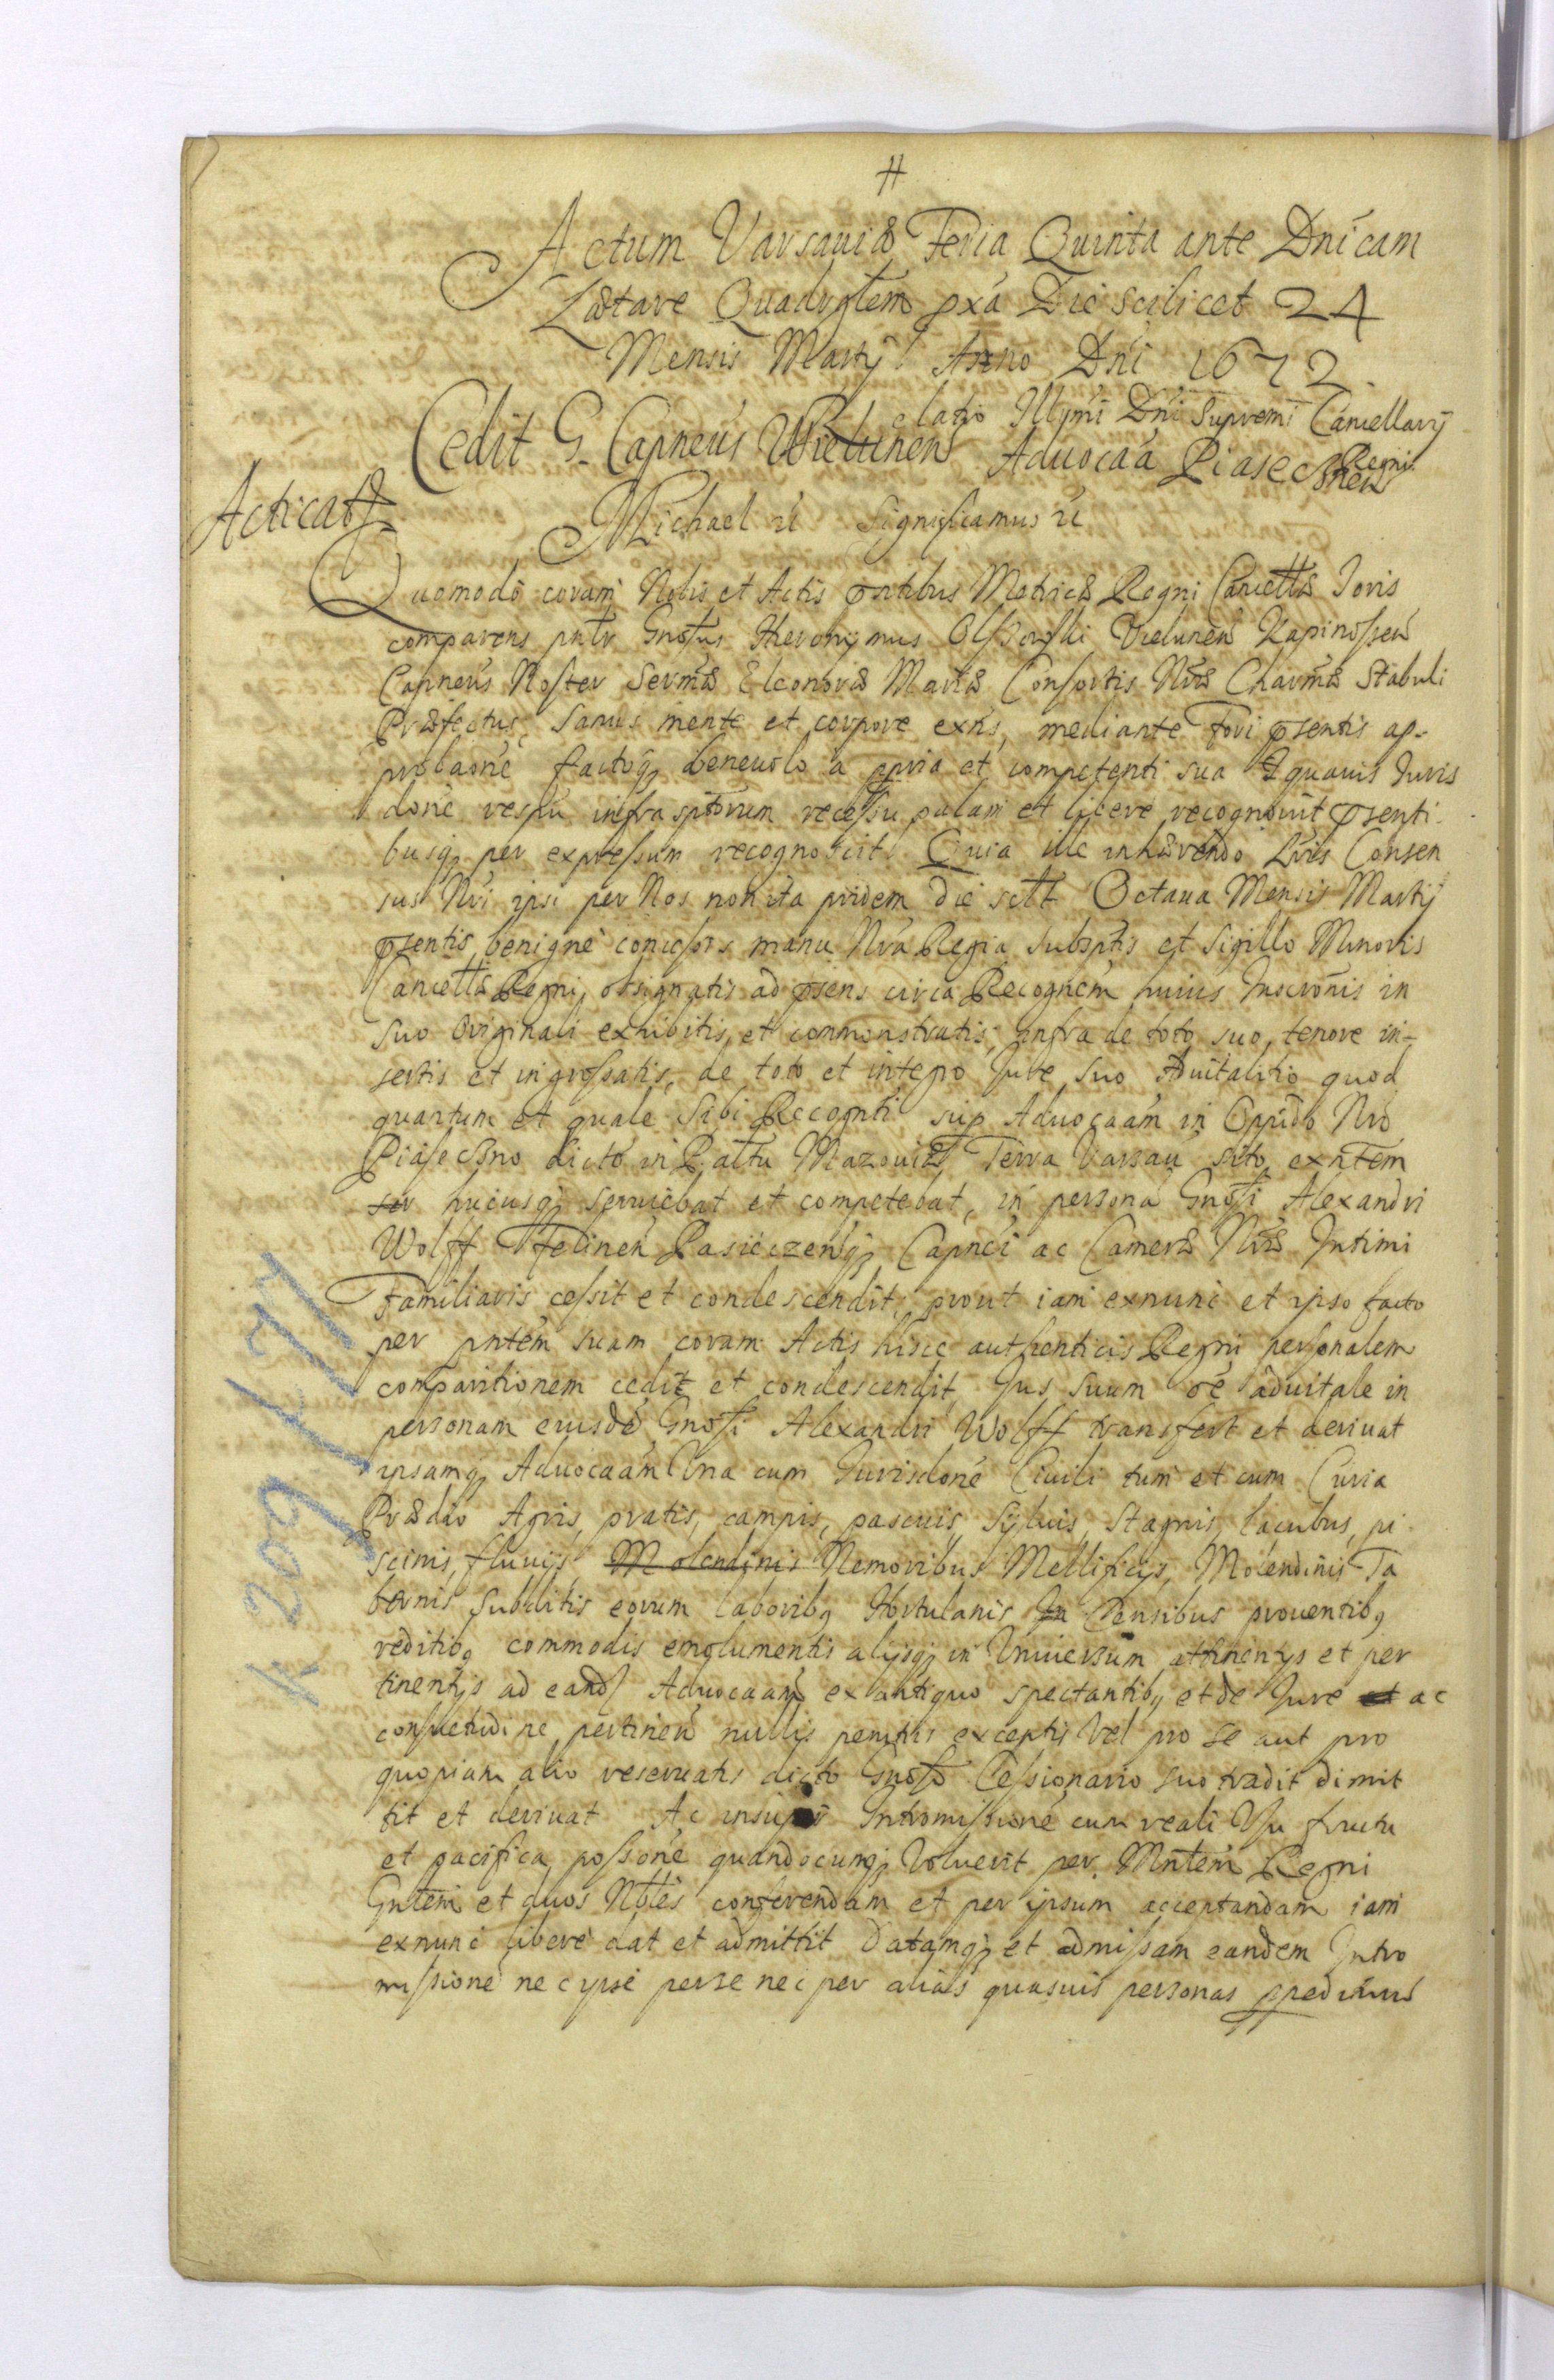 #
Actum Varsaviæ Feria Quinta ante Dnicam
Lætare Quadrgslem pxa Die scilicet 24
Mensis Martij Anno Dni 1672.
Relatio Illmi Dni Supremi Cancellarij Regni
Cedit G. Capneus Vielunen Aduocaa Piasecznen
Acticat
Michael etc Significamus etc
Quomodo coram Nobis et Actis pntibus Metricæ Regni Cancellæ Ioris
comparens pntr Gnosus Hieronymus Olszowski Vielunen Kapinossen
Capneus Noster Sermæ Eleonoræ Mariæ Consortis Nræ Charmæ Stabuli
Præfectus, sanus mente et corpore exns, mediante Fori psentis ap-
probaone factoq beneuolo a ppria et competenti sua quauis Iuris
done respu infra sptorum recessu palam et libere recognouit psenti-
busq per expressum recognoscit. Quia ille inhærendo Lris Consen
sus Nri ipsi per Nos non ita pridem die sctt Octaua Mensis Martij
psentis benigne concessis manu Nra Regia subsptis et sigillo Minoris
Cancellæ Regni obsignatis ad psens circa Recognem huius Inscronis in
suo originali exhibitis et commonstratis, infra de toto suo tenore in-
sertis et ingrossatis, de toto et integro Iure suo Aduitalitio quod
quantum et quale sibi Recognti sup Aduocaam in Oppido Nro
Piaseczno dicto in Pattu Mazouiæ Terra Varsau sito exntem
ser hucusq seruiebat et competebat, in persona Gnosi Alexandri
Wolff Felinen Pasieczenq Capnei ac Cameræ Nræ Intimi
Familiaris cessit et condescendit, prout iam exnunc et ipso facto
per pntem suam coram Actis hisce authenticis Regni personalem
comparitionem cedit et condescendit, Ius suum oe aduitale in
personam eiusde Gnosi Alexandri Wolff transfert et deriuat
ipsamq Aduocaam Una cum Iurisdone Ciuili tum et cum Curia
Prædio Agris, pratis, campis, pascuis, Syluis, Stagnis, lacubus, pi
scinis, fluuijs, Molendinis Nemoribus Mellificijs, Molendinis Ta
bernis Subditis eorum laboribq Hortulanis In Censibus prouentibq
reditibq commodis emolumentis alijsq in Vniuersum attinentijs et per
tinentijs ad eand Aduocaam ex antiquo spectantibq et de Iure et ac
consuetudine pertinen nullis penitus exceptis Vel pro se aut pro
quopiam alio reseruatis dicto Gnoso Cessionario suo tradit dimit
tit et deriuat Ac insuper Intromissione cum reali Vsu fructu
et pacifica possone quandocunq Voluerit per Mntem Regni
Gntem et duos Nbles conferendam et per ipsum acceptandam iam
exnunc libere dat et admittit Datamq et admissam eandem Intro
missione nec ipse per se nec per alias quasuis personas
K 209 LL